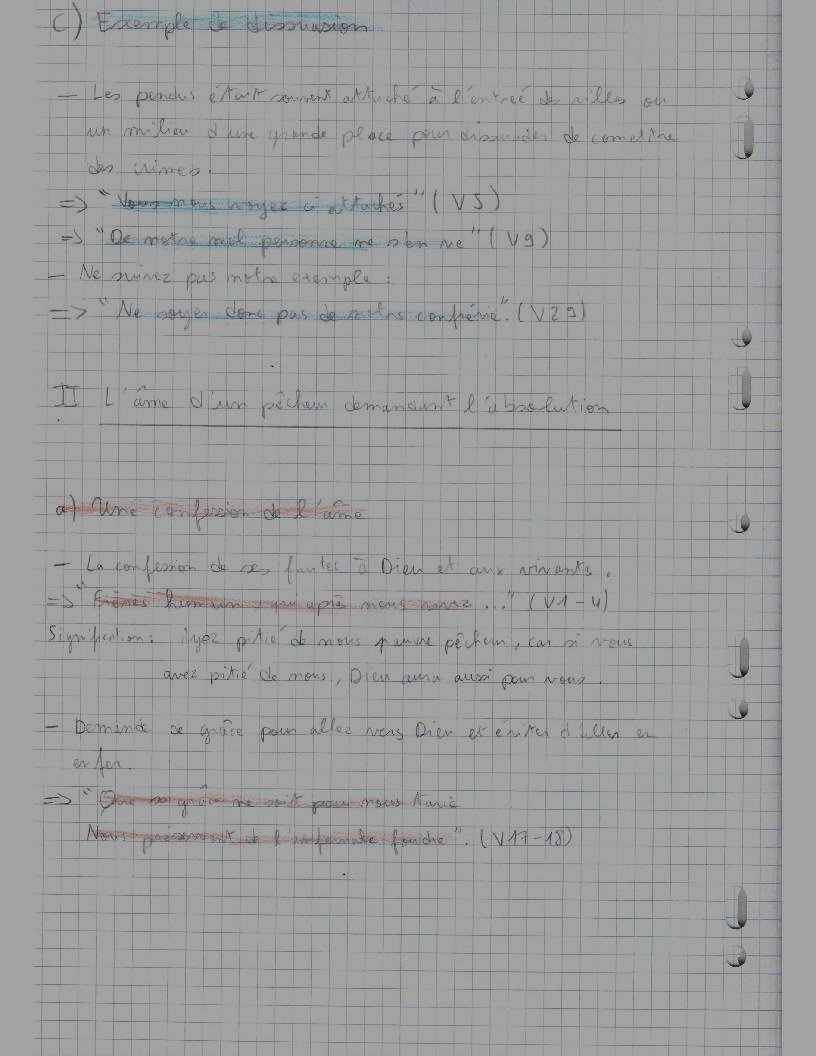 C) Exemple de dissuasion
- Les pendus était souvent attaché à l'entreé des villes ou
un milieu d'une grande place pour dissuader de comettre
des crimes.
=> "Vous nous voyez ci attachés" (V5)
=> "De notre mal personne ne s'en rie" (V9)
- Ne suivez pas notre exemple :
=> "Ne soyez donc pas de notre confrérie". (V29)
II L'âme d'un pêcheur demandant l'absolution
a) Une confession de l'âme
- La confession de ses fautes à Dieu et aux vivants.
=> "Frères humain, qui après nous vivez ..." (V1-4)
Signification: Ayez pitié de nous pauvre pêcheur, car si vous
avez pitié de nous, Dieu aura aussi pour vous.
- Demande sa grâce pour allez vers Dieu et éviter d'aller en
enfer.
=> "Que sa grâce ne soit pour nous tarie
Nous préservant de l'infernale foudre". (V17-18)